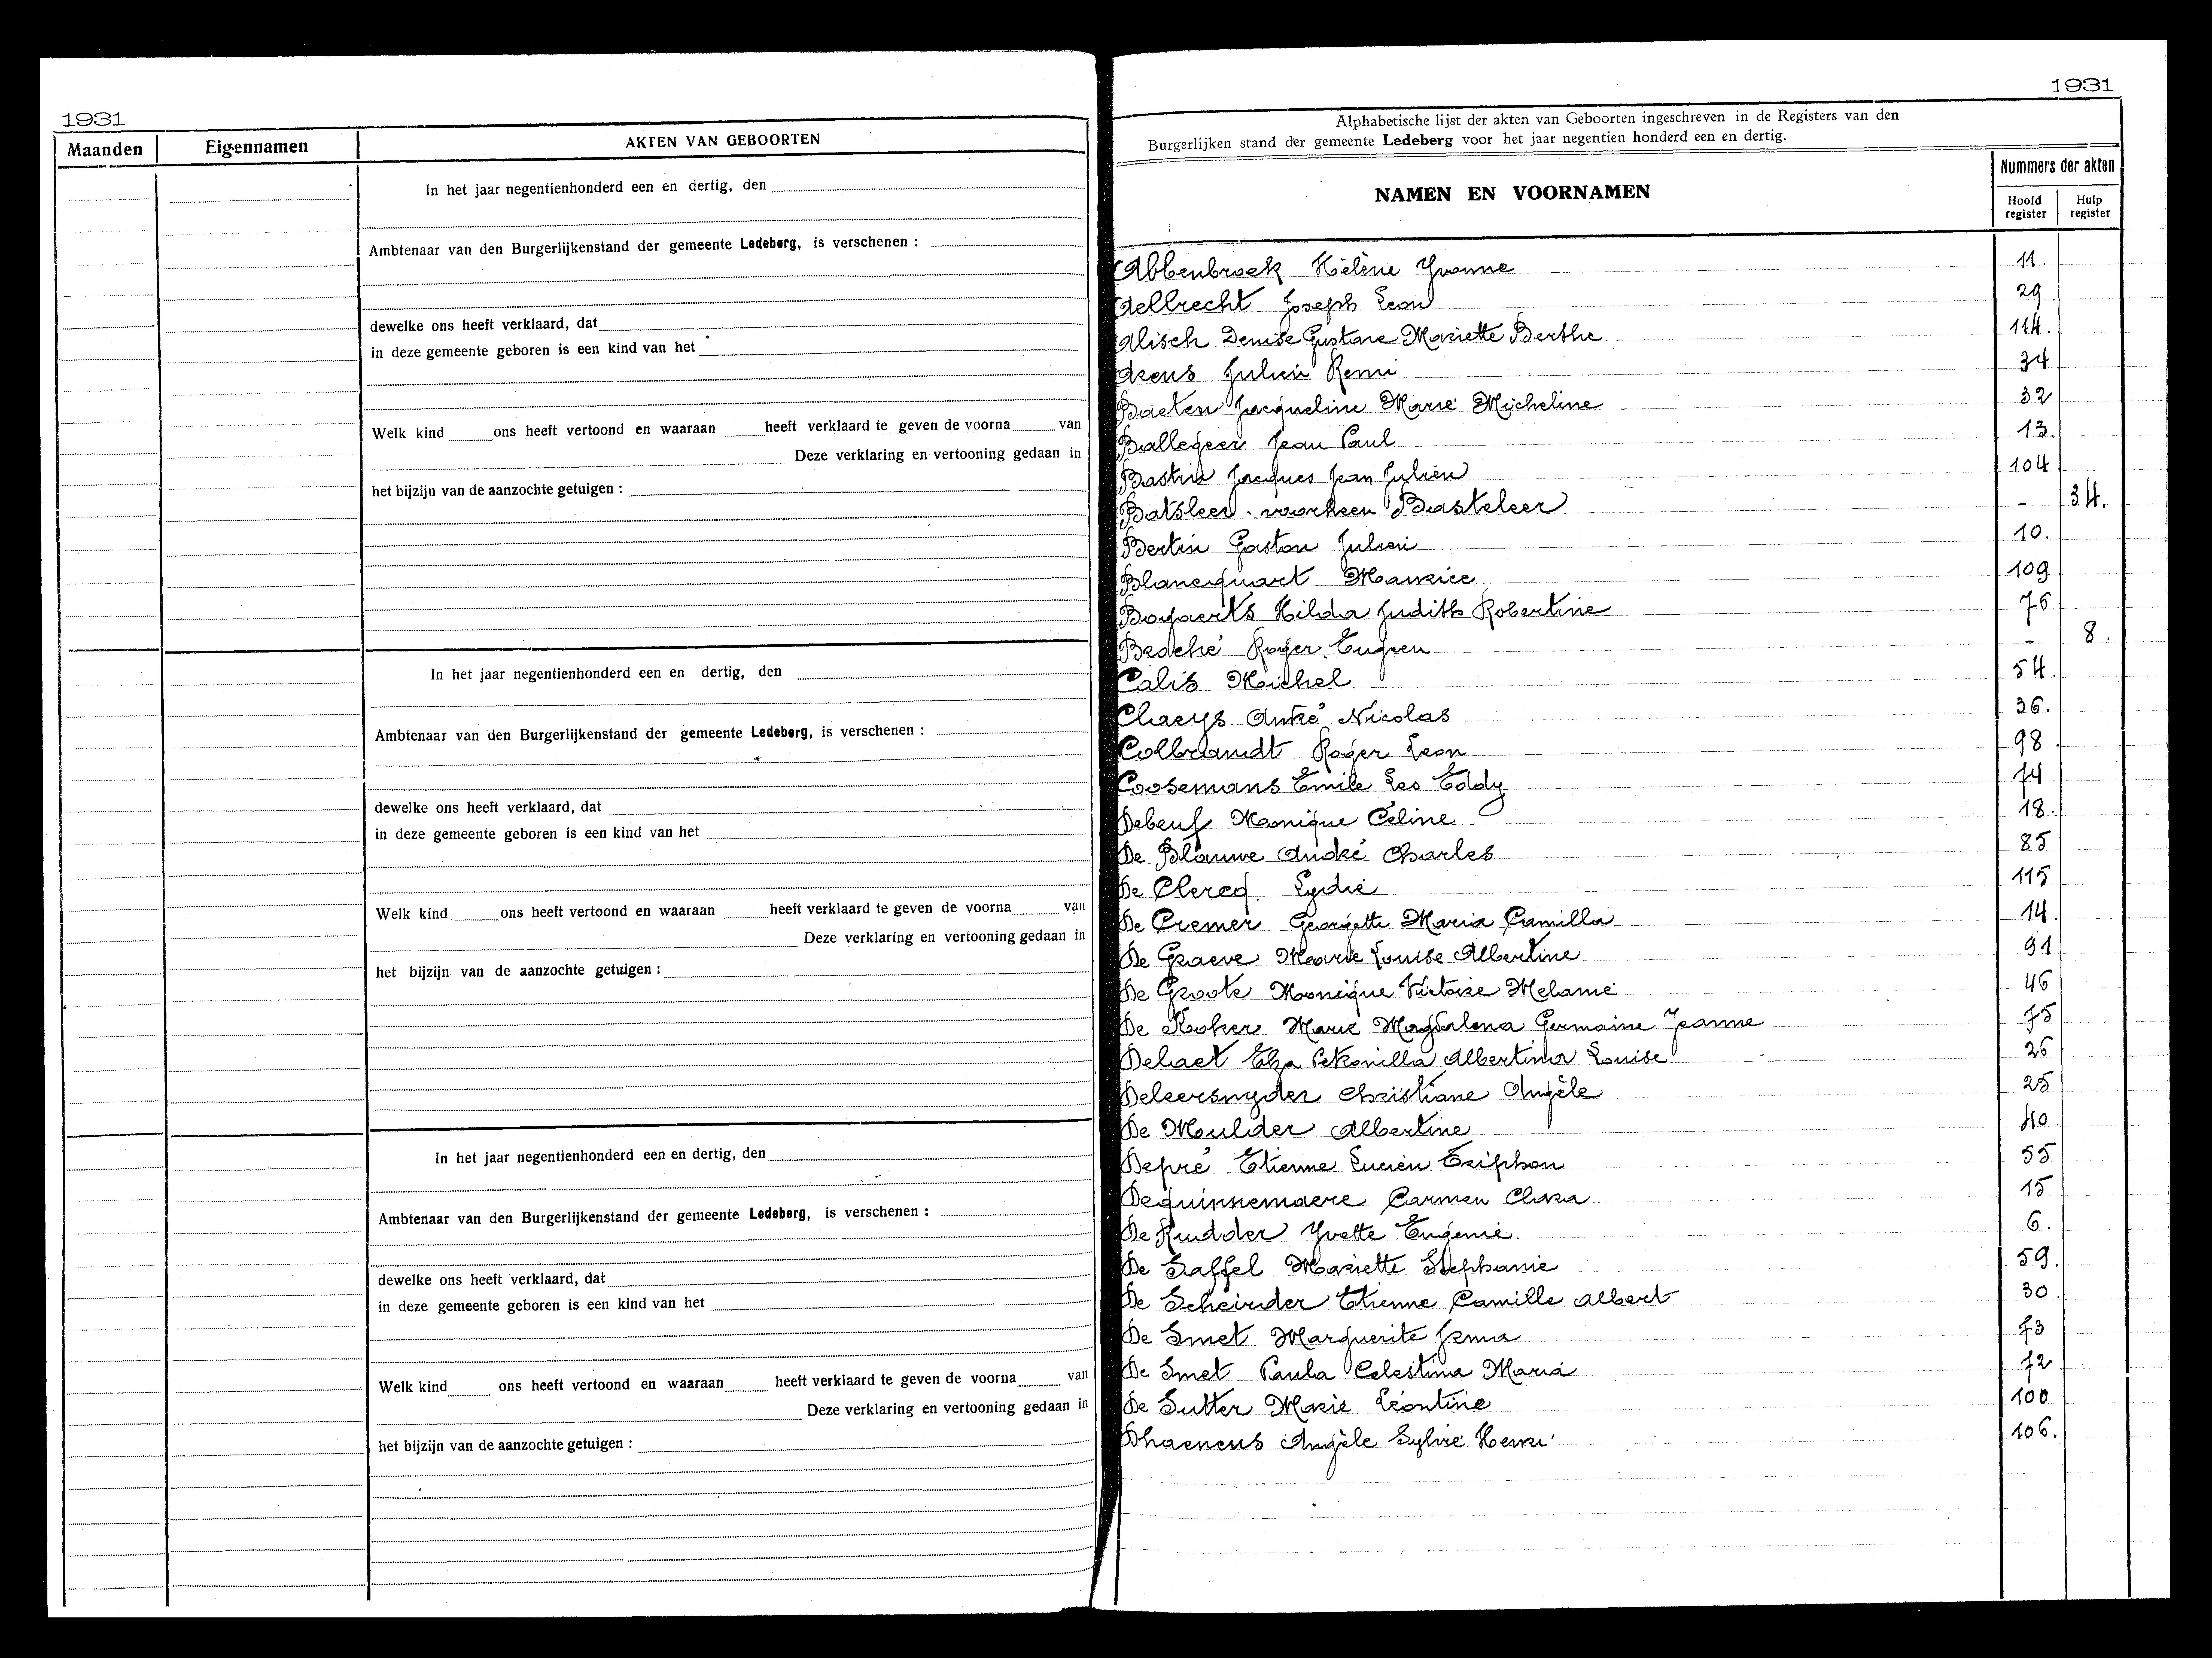 1931
Maanden
Eigennamen
AKTEN VAN GEBOORTEN
In het jaar negentienhonderd een en dertig, den
Ambtenaar van den Burgerlijkenstand der gemeente Ledeberg, is verschenen :
dewelke ons heeft verklaard, dat
in deze gemeente geboren is een kind van het
Welk kind ons heeft vertoond en waaraan heeft verklaard te geven de voorna van
Deze verklaring en vertooning gedaan in
het bijzijn van de aanzochte getuigen :
In het jaar negentienhonderd een en dertig, den
Ambtenaar van den Burgerlijkenstand der gemeente Ledeberg, is verschenen :
dewelke ons heeft verklaard, dat
in deze gemeente geboren is een kind van het
Welk kind ons heeft vertoond en waaraan heeft verklaard te geven de voorna van
Deze verklaring en vertooning gedaan in
het bijzijn van de aanzochte getuigen :
In het jaar negentienhonderd een en dertig, den
Ambtenaar van den Burgerlijkenstand der gemeente Ledeberg, is verschenen :
dewelke ons heeft verklaard, dat
in deze gemeente geboren is een kind van het
Welk kind ons heeft vertoond en waaraan heeft verklaard te geven de voorna van
Deze verklaring en vertooning gedaan in
het bijzijn van de aanzochte getuigen :
1931
Alphabetische lijst der akten van Geboorten ingeschreven in de Registers van den
Burgerlijken stand der gemeente Ledeberg voor het jaar negentien honderd een en dertig.
NAMEN EN VOORNAMEN
Nummers der akten
Hoofd register
Hulp register
Abbenbroek Hélène Yvonne 11.
Aelbrecht Joseph Leon 29
Alisch Denise Gustave Mariette Berthe 114.
Arens Julien Remi 34
Baeten Jacqueline Marie Micheline 32
Ballegeer Jean Paul 13.
Bastin Jacques Jean Julien 104
Batsleer voorheen Basteleer - 34.
Bertin Gaston Julien 10.
Blancquart Maurice 109
Bogaerts Hilda Judith Robertine 76
Broché Roger Eugeen - 8.
Calis Michel 54.
Claeys André Nicolas 36.
Colbrandt Roger Leon 98
Coosemans Emile Leo Eddy 74
Debeuf Monique Céline 18.
De Blauwe André Charles 85
De Clercq Lydie 115
De Cremer Georgette Maria Camilla 14.
De Graeve Marie Louise Albertine 91
De Groote Monique Victoire Melanie 46
De Koker Marie Magdalena Germaine Jeanne 75
Delaet Petronilla Albertina Louise 26
Deleersnyder Christiane Angèle 25
De Mulder Albertine 40
Depré Etienne Lucien Triphon 55
Dequinnemaere Carmen Clara 15
De Rudder Yvette Eugenie 6.
De Saffel Mariette Stephanie 59.
De Scheirder Etienne Camille Albert 30
De Smet Marguerite Irma 73
De Smet Paula Celestina Maria 72
De Sutter Marie Léontine 100
Dhaenens Angèle Sylvie Henri 106.